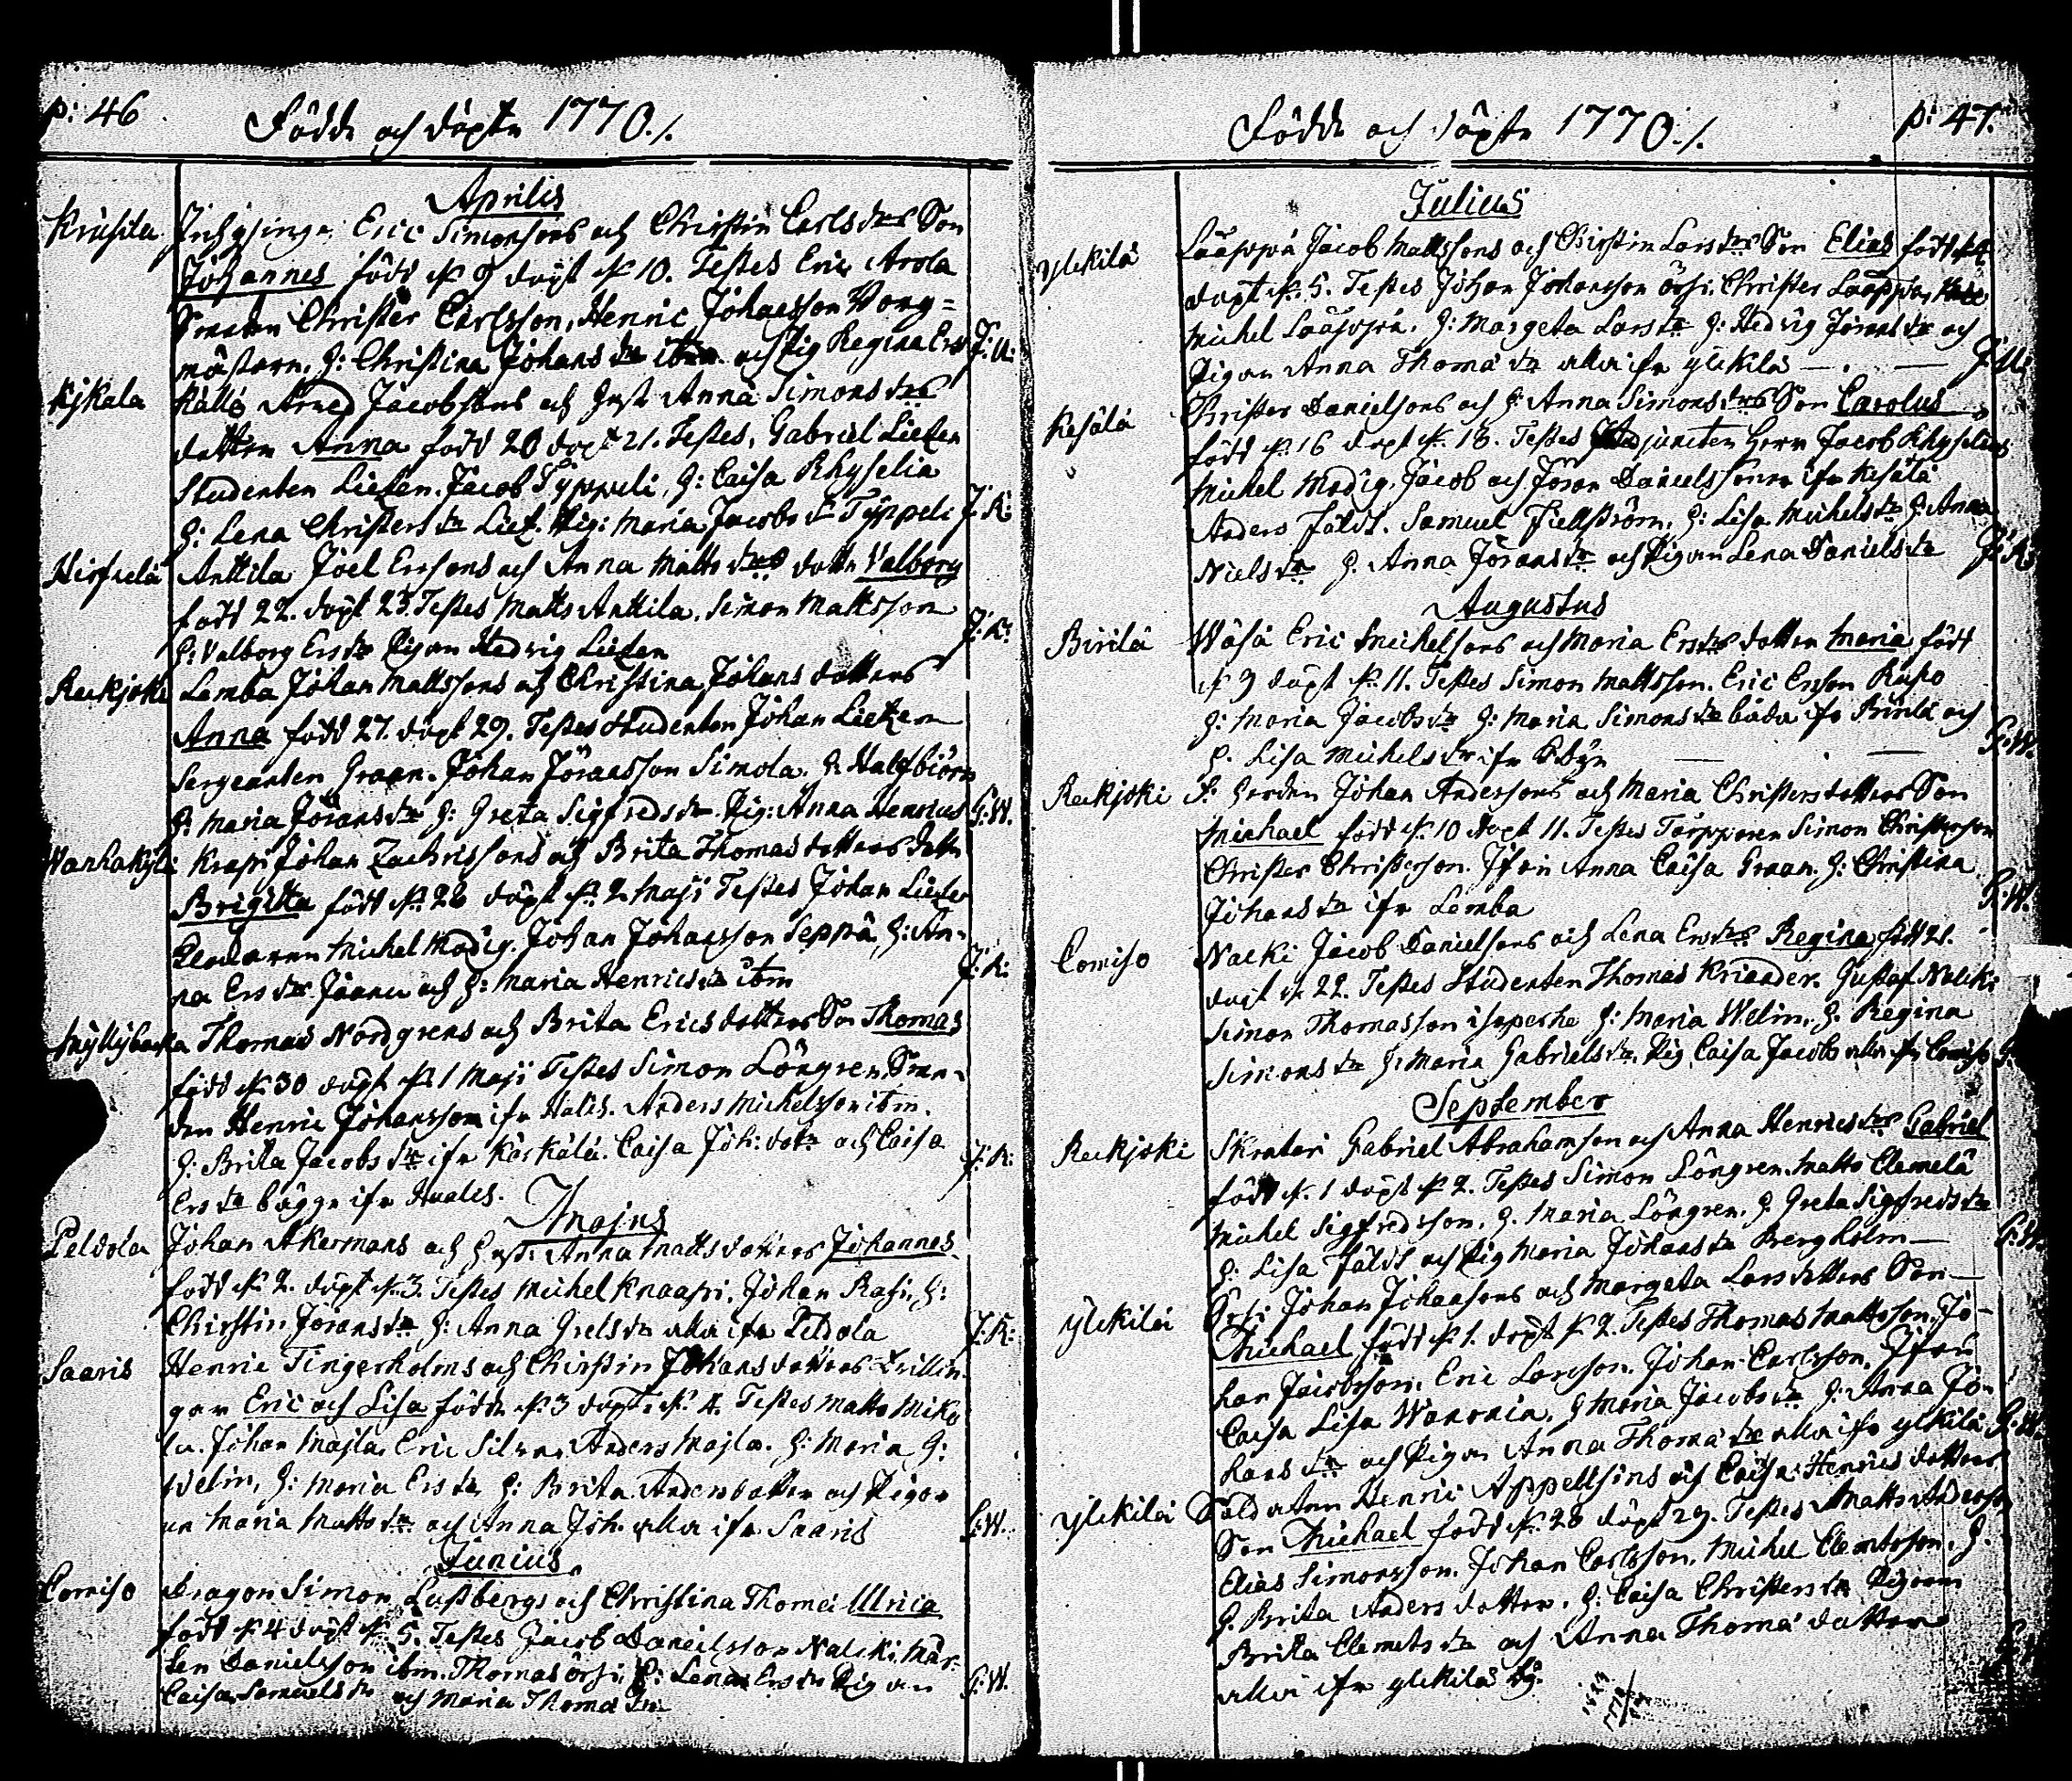 p: 46
Födde och döpte 1770./.
Aprilis
Krusila Eric Simonsons och Christin Carls drs Son
Johannes född d. 9 döpt d. 10. Testes Eric Arola
Christer Carlsson, Henric Johansson Vong=
mästaren. H: Christina Johans dr ibm och Pig Regina Ers
Kjkala Källi Jacobssons och Hust Anna Simons drs
dotter Anna född 20 döpt 21. Testes, Gabriel Lietzen
Studenten Lietzen. Jacob Typpeli, H: Caisa Rhyselia
H: Lena Christers dr Lietz. Pig: Maria Jacobs dr Typpeli J: R:
Anttila Joel Erssons och Anna Matts drs dotter Valborg
född 22. döpt 23. Testes Matts Anttila, Simon Mattsson
H: Valborg Ers dr Pigan Hedvig Lietzen J: R:
Reckjoki Lemba Johan Mattssons och Christina Johans dotters
Anna född 27. döpt 29. Testes Studenten Johan Lietzen
Sergeanten Graan. Johan Jöransson Simola. H. Halfbiörn
H: Maria Jörans dr H: Greta Sigfreds dr Pig: Anna Henrics G: W.
Wanhakyli Krapi Johan Zachrissons och Brita Thomas dotters dotter
Brigitta född d. 28 döpt d. 2 Maji Testes Johan Lietzen
Michel Modig. Johan Johansson Seppä, H: An-
na Ers dr och H: Maria Henrics dr ibm J: R:
Myllybacka Thomas Nordgrens och Brita Erics dotters Son Thomas
född d. 30 döpt d. 1 Maji Testes Simon Löngren
den Henric Johansson ifr Halis. Anders Michelsson ibm.
H: Brita Jacobs dr ifr Kärkälä. Caisa Joh: dotr och Caisa J: R:
Ers dr bägge ifr
Majus
Peldola Johan Åkermans och Hust. Anna Matts dotters Johannes
född d. 2. döpt d. 3. Testes Michel Knaapi. Johan Rasi. H:
Christin Jörans dr H: Anna Grels dr alla ifr Peldola J: R:
Saaris Henric Tingerholms och Christin Johans dotters Trillin
gar Eric och Lisa födde d. 3 döpte d. 4. Testes Matts Miko
la. Johan Majla. Eric Anders Majla. H: Maria H:
Welin, H: Maria Ers dr H: Brita Anders dotter och Pigor
na Maria Matts dr och Anna Joh. alla ifr Saaris G: W.
Junius
Comiso Dragon Simon Lustbergs och Christina Thomæ Ulrica
född d. 4 döpt d. 5. Testes Jacob Danielsson Nalcki, Mår-
ten Danielsson ibm. Thomas Örsi, H: Lena Ers dr Pigan
Caisa Samuels dr och Maria Thomæ dr G: W.
Födde och döpte 1770./. p: 47.
Julius
Ylikilä Lääsppä Jacob Mattssons och Christin Lars drs Son Elias född
döpt d. 5. Testes Johan Johansson Örsi. Christer Lääsppä,
Michel Lääsppä. H: Margeta Lars dr H: Hedvig Jörans dr och
Pigan Anna Thomæ dr alla ifr Ylikilä
Kesälä Christer Danielsons och H: Anna Simons drs Son Carolus
född d. 16 döpt d. 18. Testes Adjuncten Herr Jacob Rhyselius
Michel Modig. Jacob och Jöran Danielssöner ifr Kesälä
Anders Fäldt. Samuel Fiellström. H: Lisa Michels dr H: Anna
Niels dr H. Anna Jörans dr och Pigan Lena Daniels dr J: R:
Augustus
Birilä Wäsä Eric Michelsons och Maria Ers drs dotter Maria född
d. 9 döpt d. 11. Testes Simon Mattsson. Eric Ersson Rupo
H: Maria Jacobs dr H: Maria Simons dr båda ifr Birilä och
H. Lisa Michels dr ifr G: W.
Reckjoki Johan Anderssons och Maria Christers dotters Son
Michael född d. 10 döpt 11. Testes Torpparen Simon Christersson
Christer Christersson. Jfru Anna Caisa Graan. H: Christina
Johans dr ifr Lemba G: W.
Comiso Nalcki Jacob Danielsons och Lena Ers drs Regina född 21.
döpt d. 22. Testes Studenten Thomas Kriander. Gustaf Nalcki
Simon Thomasson isoperhe H: Maria Welin. H. Regina
Simons dr H: Maria Gabriels dr, Pig Caisa Jacobs alla ifr Comiso
September
Reckjoki Skrateri Gabriel Abrahamson och Anna Henrics drs Gabriel
född d. 1 döpt d. 2. Testes Simon Löngren. Matts Clemelä
Michel Sigfredsson. H. Maria Löngren. H. Greta Sigfreds dr
H: Lisa Fäldt och Pig Maria Johans dr Bergholm G: W.
Ylikilä Örsi Johan Johansons och Margeta Lars dotters Son
Michael född d. 1. döpt d. 2. Testes Thomas Mattsson, Jo-
han Jacobsson. Eric Larsson. Johan Carlsson. Jfru
Caisa Lisa Wanonia. H Maria Jacobs dr H: Anna Jo-
hans dr och Pigan Anna Thomæ dr alla ifr Ylikilä G: W.
Ylikilä Soldaten Henric Appellsins och Caisa Henrics dotters
Son Michael född d. 28 döpt 29. Testes Matts Andersson
Elias Simonsson. Johan Carlsson. Michel Clemetsson. H.
H. Brita Anders dotter. H: Caisa Christers dr Pigorna
Brita Clemets dr och Anna Thomæ dotter
alla ifr Ylikilä by.